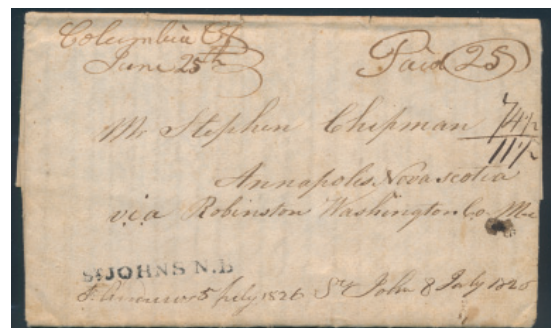 Columbia Ct
June 25th
Paid 25
Mr Stephen Chipman
7 4 1/2
11 1/2
Annapolis Nova scotia
via Robinston Washington Co. Me
St JOHNS N.B
5 July 1826 St John 8 July 1826